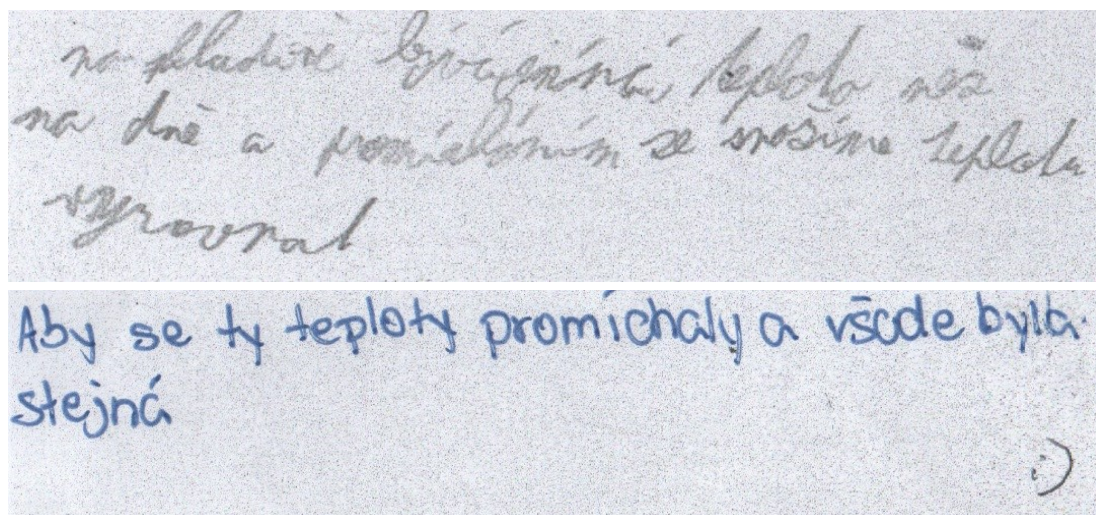 na hladině bývá jenná teplota než
na dně a promícháním se snažíme teplotu
vyrovnat
Aby se ty teploty promíchaly a všude byla
stejná
:)